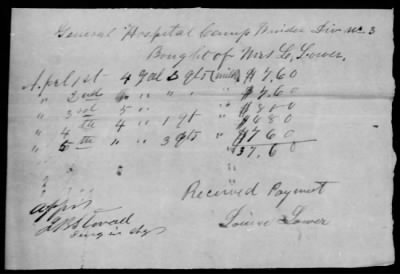 General Hospital Camp Winder Div No. 3
Bought of Mrs L. Lower,
Aprl 1st 4 gal 3 qts (milk) $7.60
" 2nd " " " " $7.60
" 3rd 5 " $8.00
" 4th 4 " 1 qt $6.80
" 5th " " 3 qts $7.60
37.60
Received Payment
Louise Lower
Surg in chg